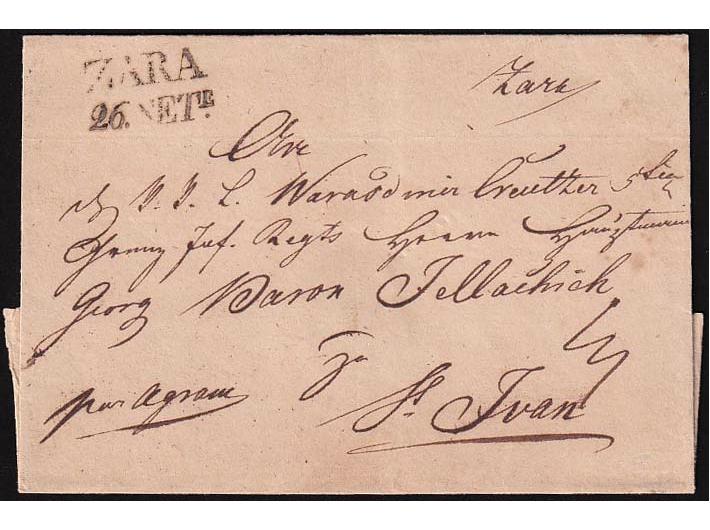 ZARA
26. SETE.
Zara
Des K. K. L. Warasdiner Creutzer 5ten
Grenz Inf. Regts Herrn Hauptmann
Georg Baron Jellachich
zu
St. Ivan
per Agram